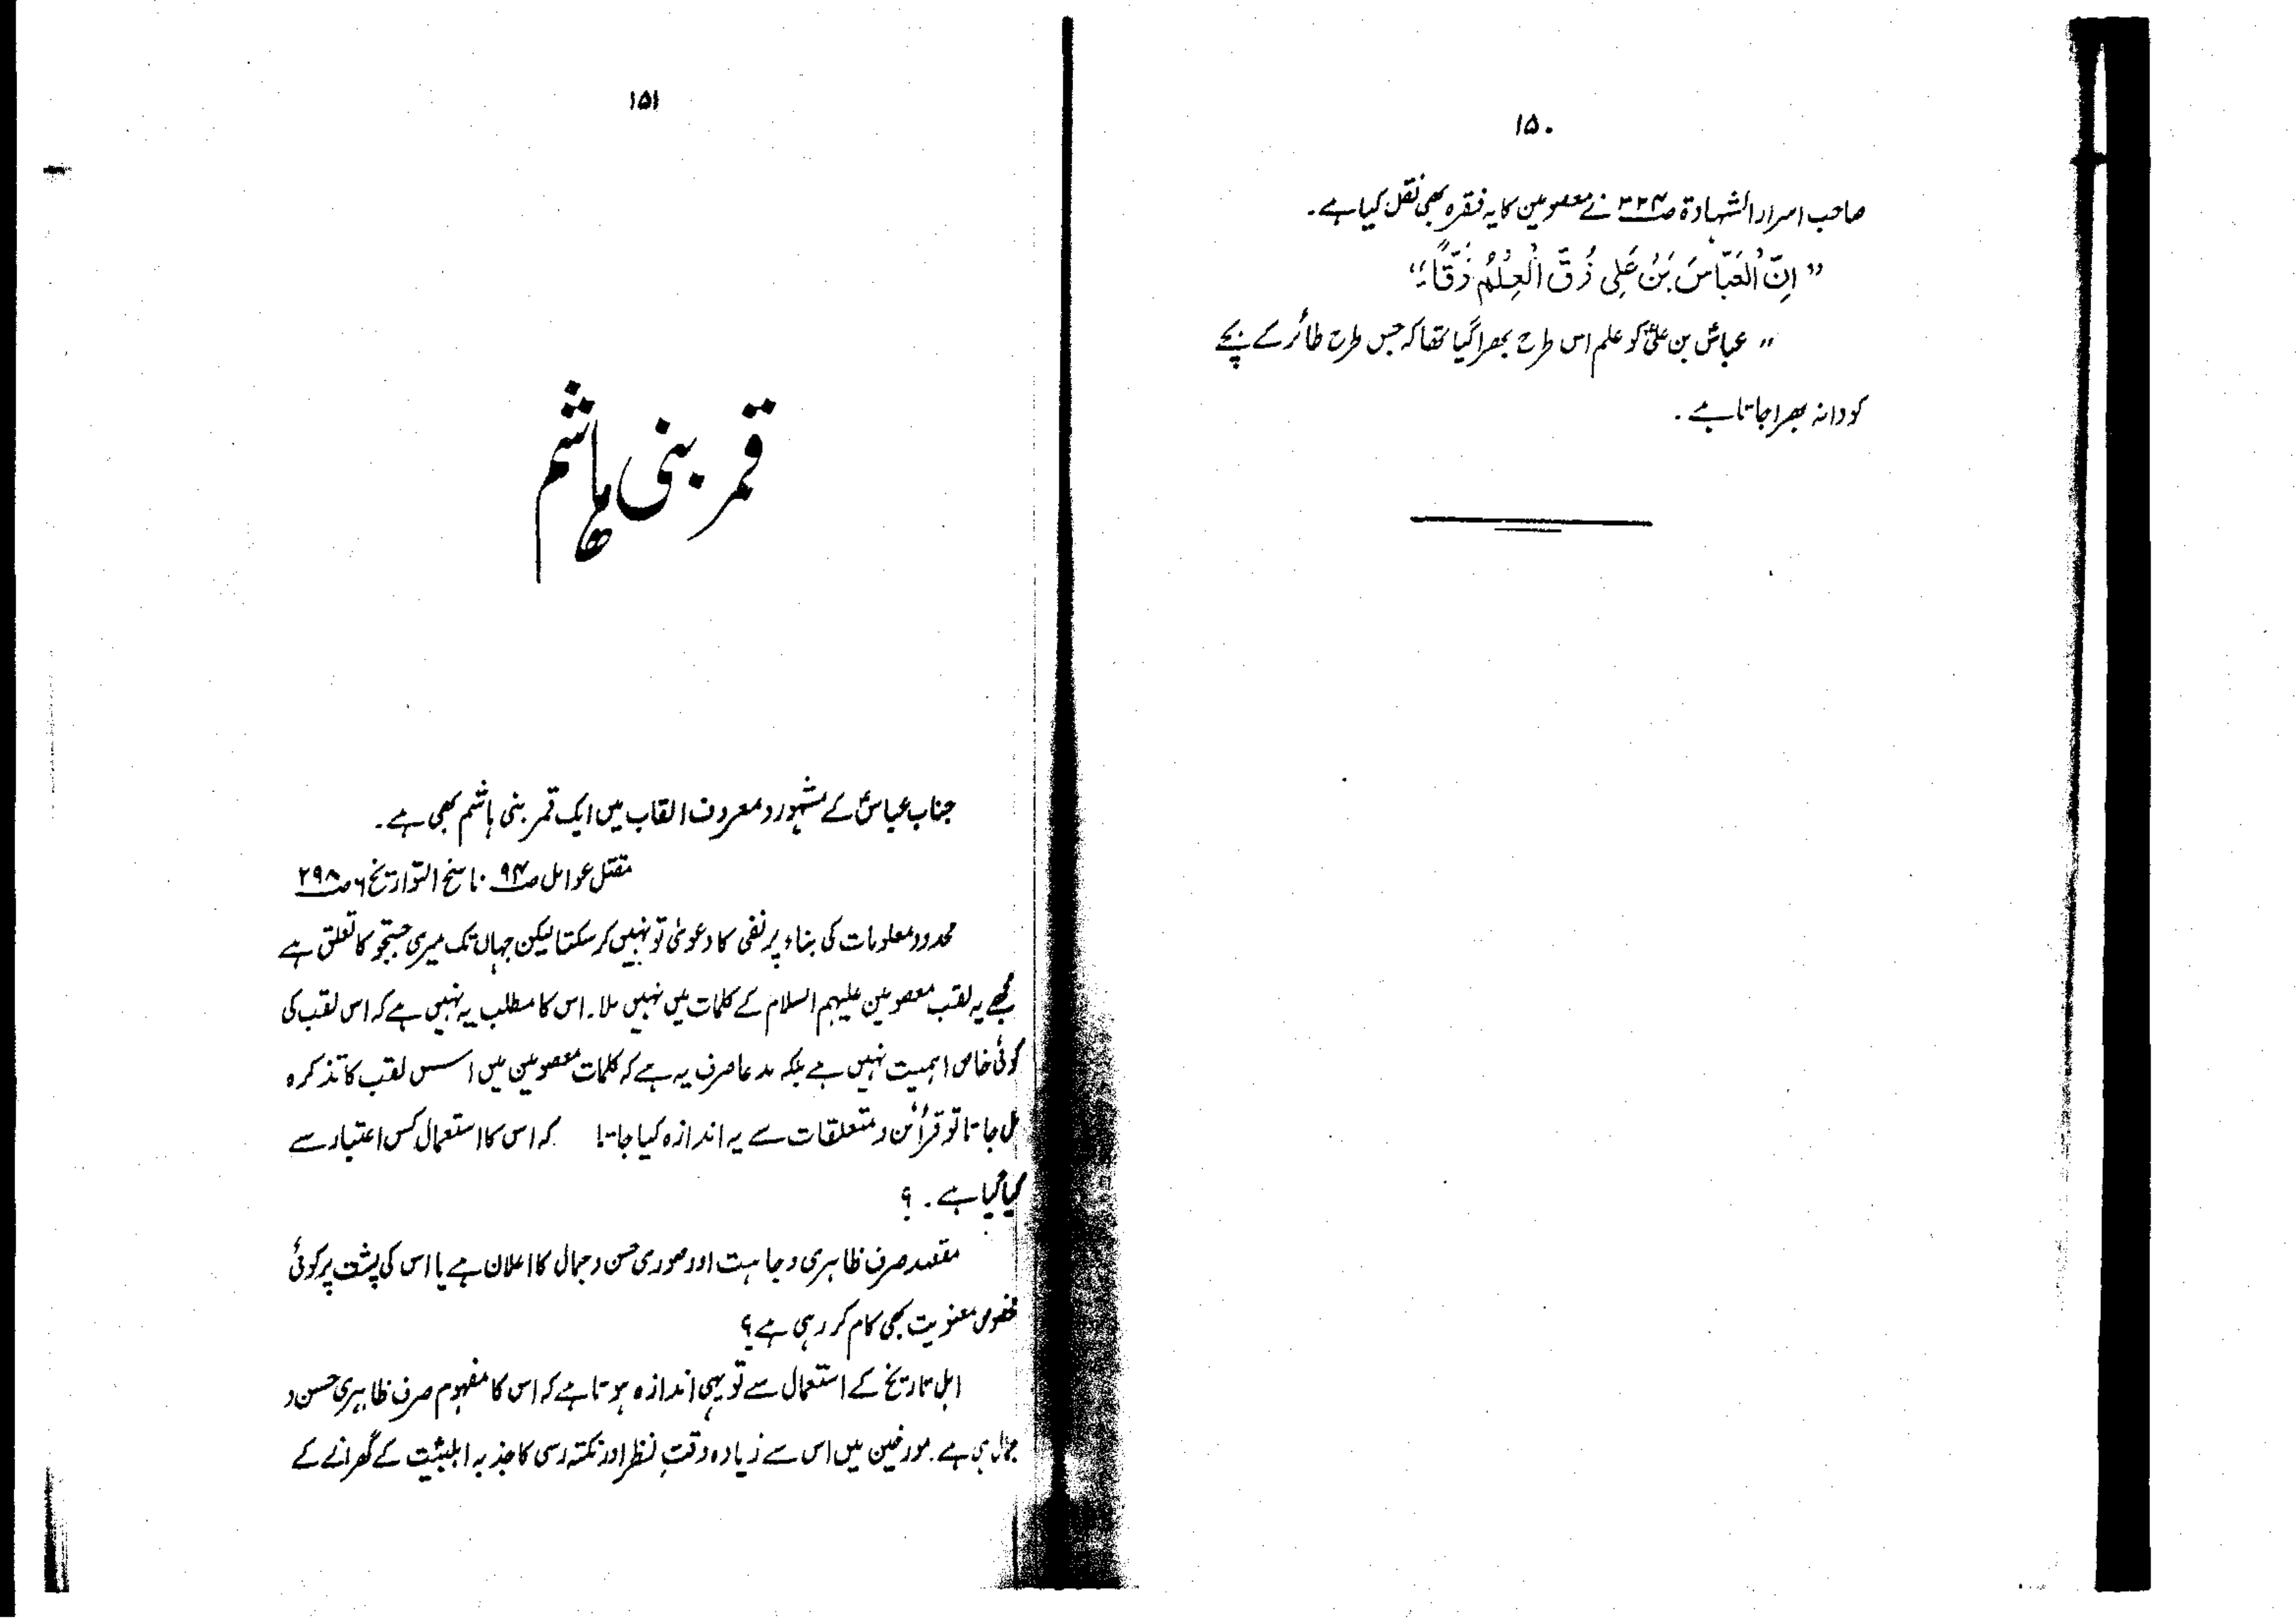 ۱۵۰
صاحب اسرار الشہادۃ ص۳۲۴ نے معصومین کا یہ فقرہ بھی نقل کیا ہے۔
" اِنَّ الْعَبَّاسَ بَنْ عَلِی زُقَّ الْعِلْمُ زَقًّا؛"
" عباسؑ بن علیؑ کو علم اس طرح بھرا گیا تھا کہ جس طرح طائر کے بچے
کو دانہ بھرا جاتا ہے ۔
۱۵۱
قمر بنی ہاشم
جناب عباسؑ کے مشہور و معروف القاب میں ایک قمر بنی ہاشم بھی ہے۔
مقتل عوالم ص۹۴ . ناسخ التواریخ ۶ ص۲۹۸
محدود معلومات کی بناء پر نفی کا دعویٰ تو نہیں کر سکتا لیکن جہاں تک میری جستجو کا تعلق ہے
مجھے یہ لقب معصومین علیہم السلام کے کلمات میں نہیں ملا۔ اس کا مطلب یہ نہیں ہے کہ اس لقب کی
کوئی خاص اہمیت نہیں ہے بلکہ مدعا صرف یہ ہے کہ کلمات معصومین میں اس لقب کا تذکرہ
مل جاتا تو قرائن و متعلقات سے یہ اندازہ کیا جاتا کہ اس کا استعمال کس اعتبار سے
کیا گیا ہے . ؟
مقصد صرف ظاہری وجاہت اور صوری حسن و جمال کا اعلان ہے یا اس کی پشت پر کوئی
مخصوص معنویت بھی کام کر رہی ہے ؟
اہل تاریخ کے استعمال سے تو یہی اندازہ ہوتا ہے کہ اس کا مفہوم صرف ظاہری حسن و
جمال ہی ہے. مورخین میں اس سے زیادہ دقتِ نظر اور نکتہ رسی کا جذبہ اہلبیتؑ کے گھرانے کے